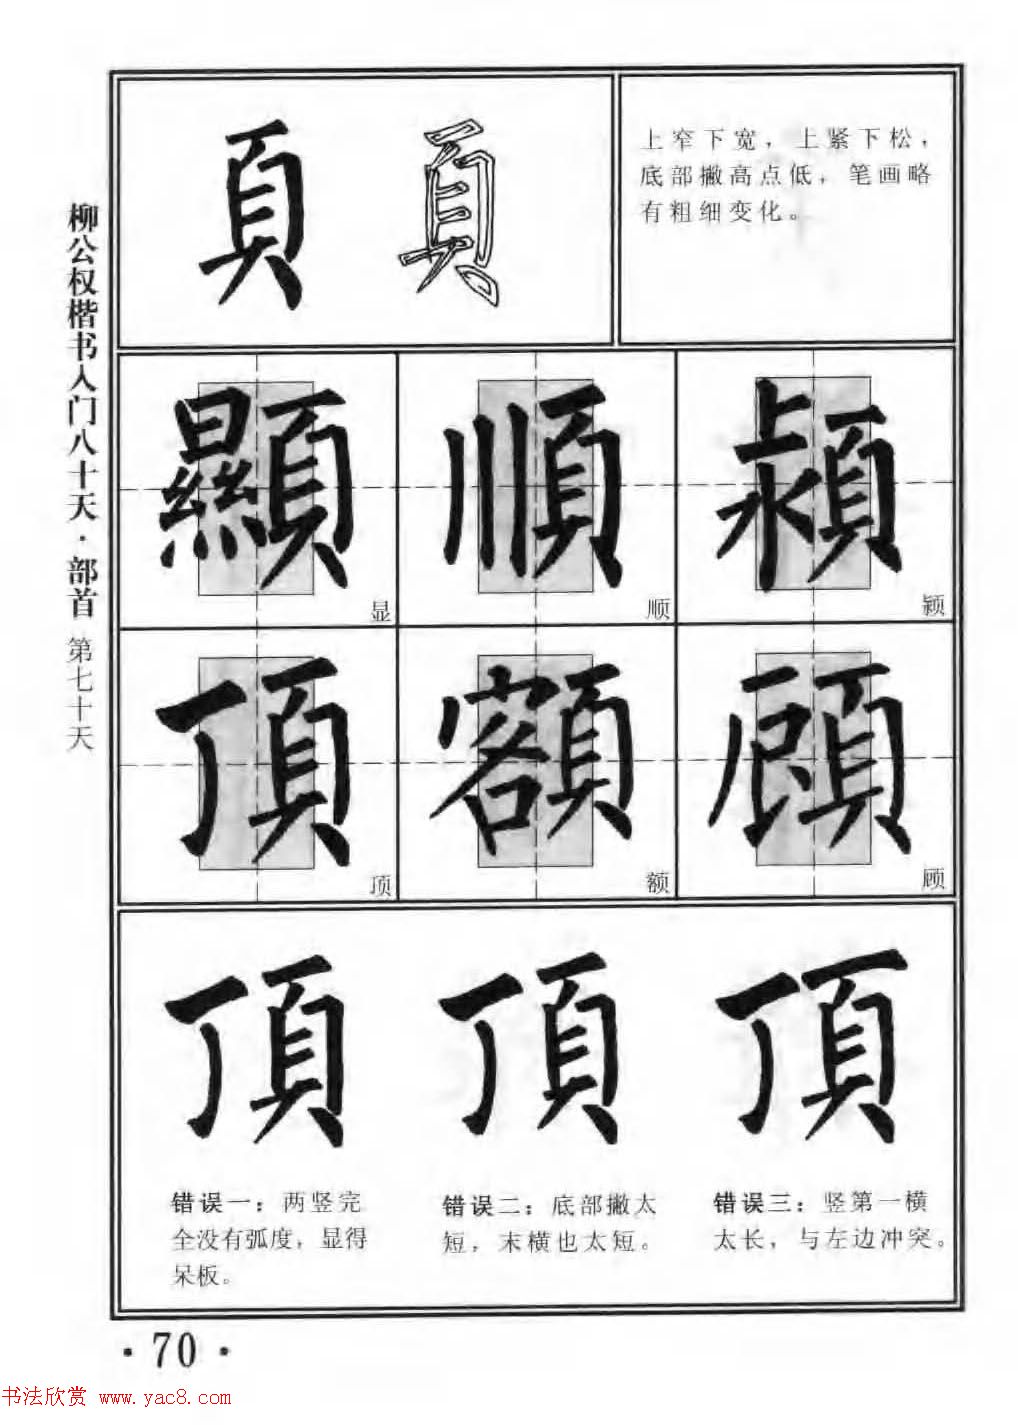 柳公权楷书入门八十天·部首 第七十天
頁 頁
上窄下宽，上紧下松，
底部撇高点低，笔画略
有粗细变化。
顯 順 潁
显 顺 颍
頂 額 顧
顶 额 顾
頂 頂 頂
错误一：两竖完
全没有弧度，显得
呆板。
错误二：底部撇太
短，末横也太短。
错误三：竖第一横
太长，与左边冲突。
·70·
书法欣赏 www.yac8.com